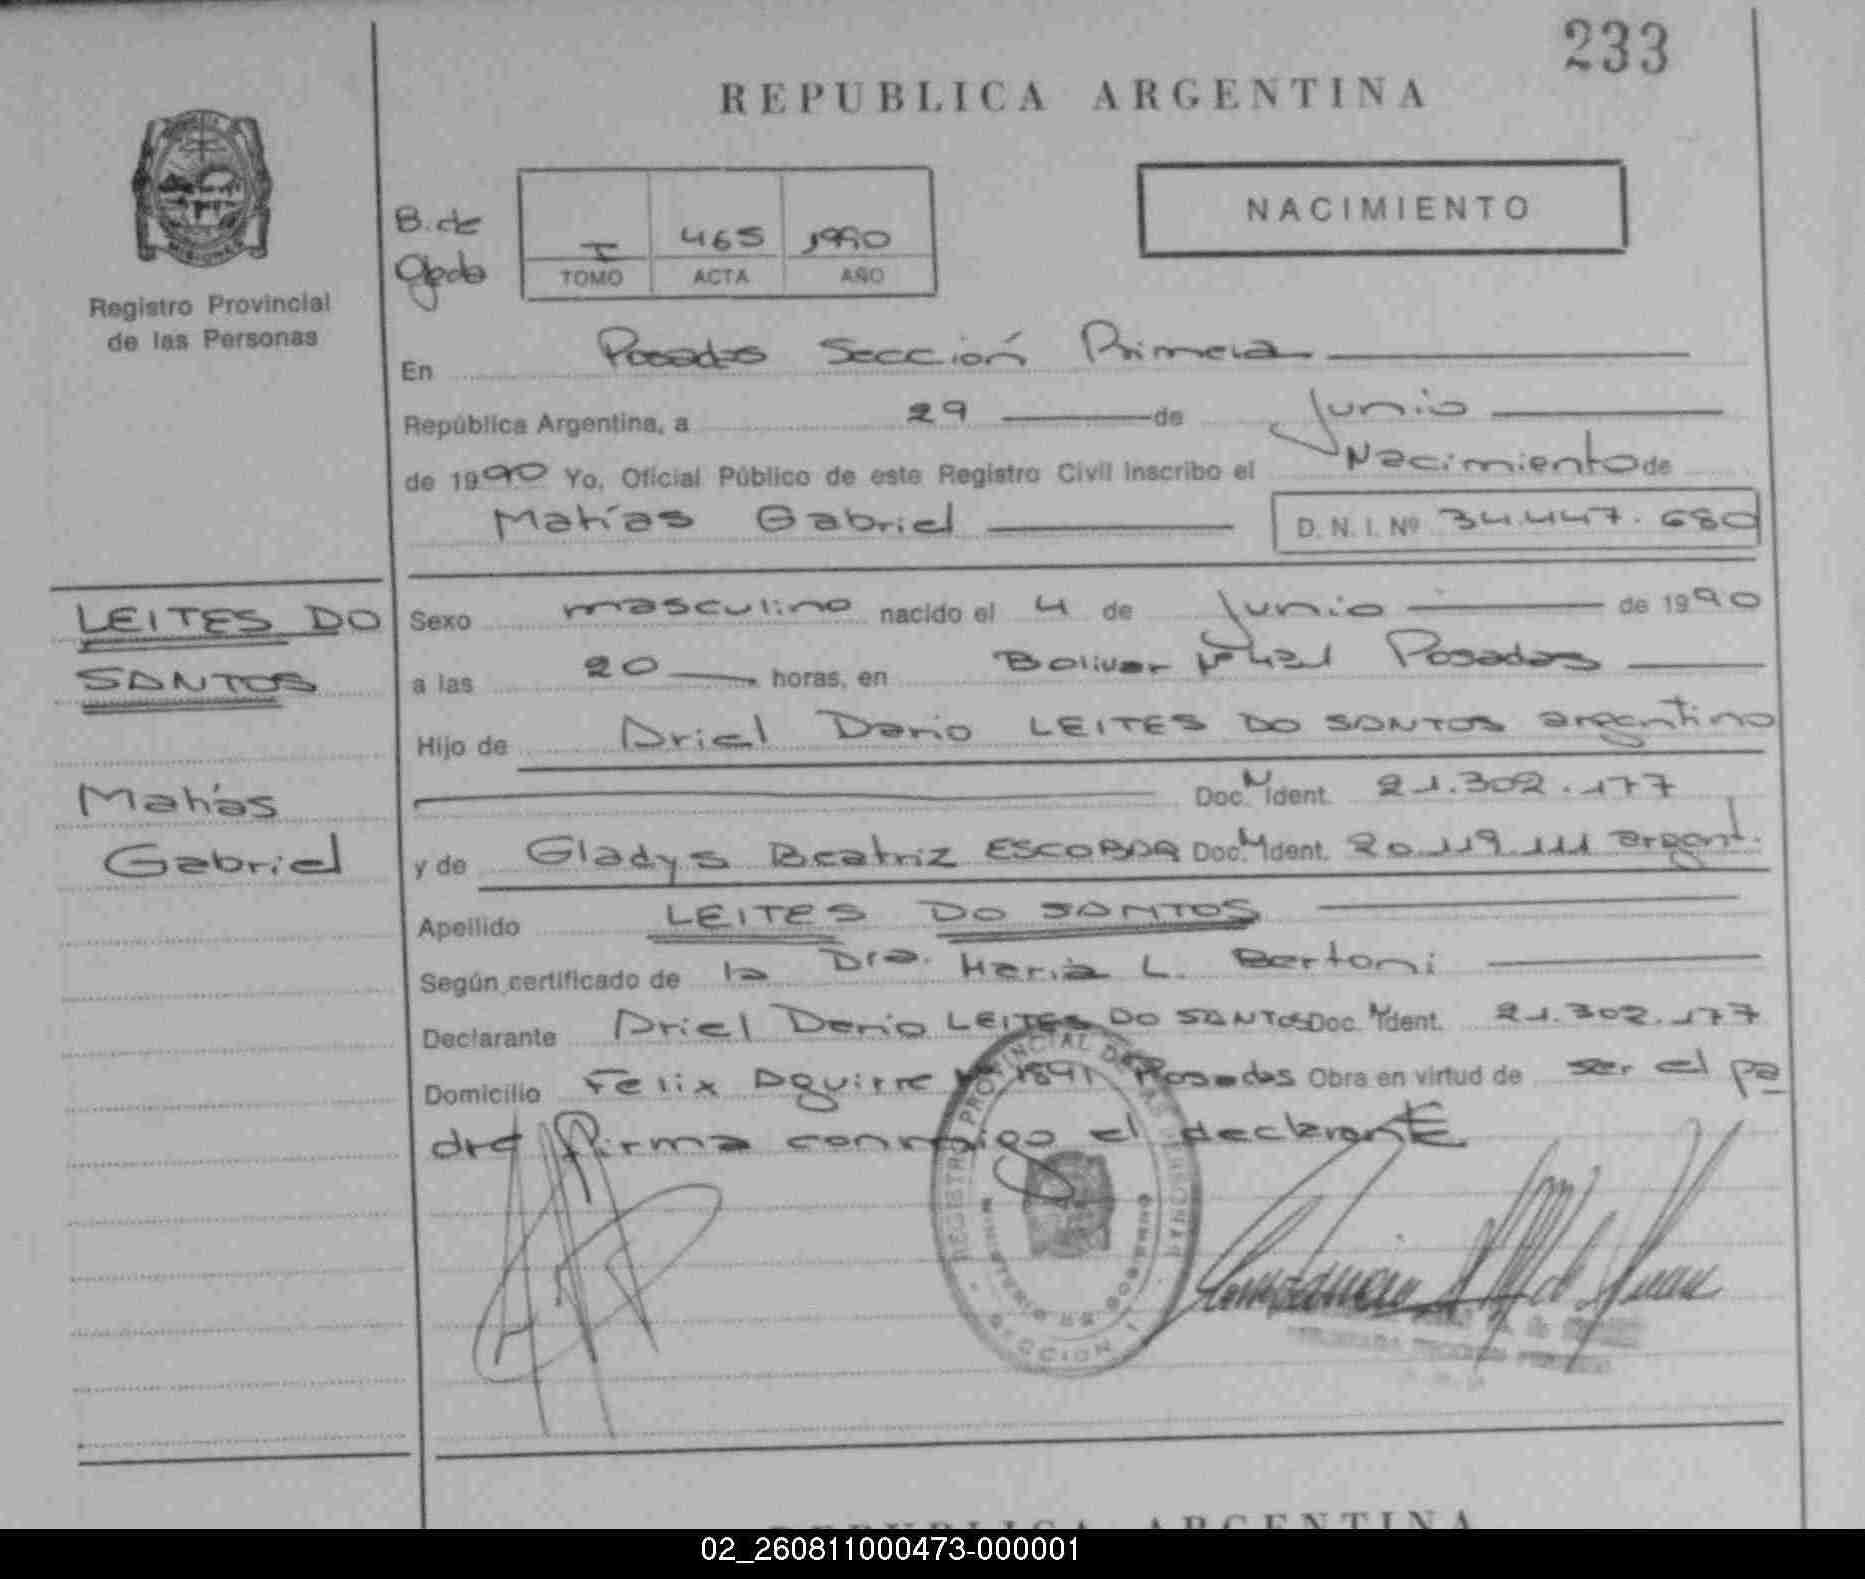 233
REPUBLICA ARGENTINA
NACIMIENTO
B. de
I 465 1990
TOMO ACTA AÑO
Registro Provincial
de las Personas
En Posadas Sección Primera
República Argentina, a 29 de Junio
de 1990 Yo, Oficial Público de este Registro Civil inscribo el Nacimiento de
Matías Gabriel D. N. I. Nº 34.447.680
LEITES DO
SANTOS
Matías
Gabriel
Sexo masculino nacido el 4 de Junio de 1990
a las 20 horas, en Bolivar Nº 421 Posadas
Hijo de Ariel Dario LEITES DO SANTOS argentino
Doc. N Ident. 21.302.177
y de Gladys Beatriz ESCOBAR Doc. N Ident. 20.119.111 argent.
Apellido LEITES DO SANTOS
Según certificado de la Dra. Maria L. Bertoni
Declarante Ariel Dario LEITES DO SANTOS Doc. N Ident. 21.302.177
Domicilio Felix Aguirre Nº 1891 Posadas Obra en virtud de ser el pa
dre firma conmigo el declarante
REGISTRO PROVINCIAL DE LAS PERSONAS
MINISTERIO DE GOBIERNO
SECCION 1
REPUBLICA ARGENTINA
02_260811000473-000001